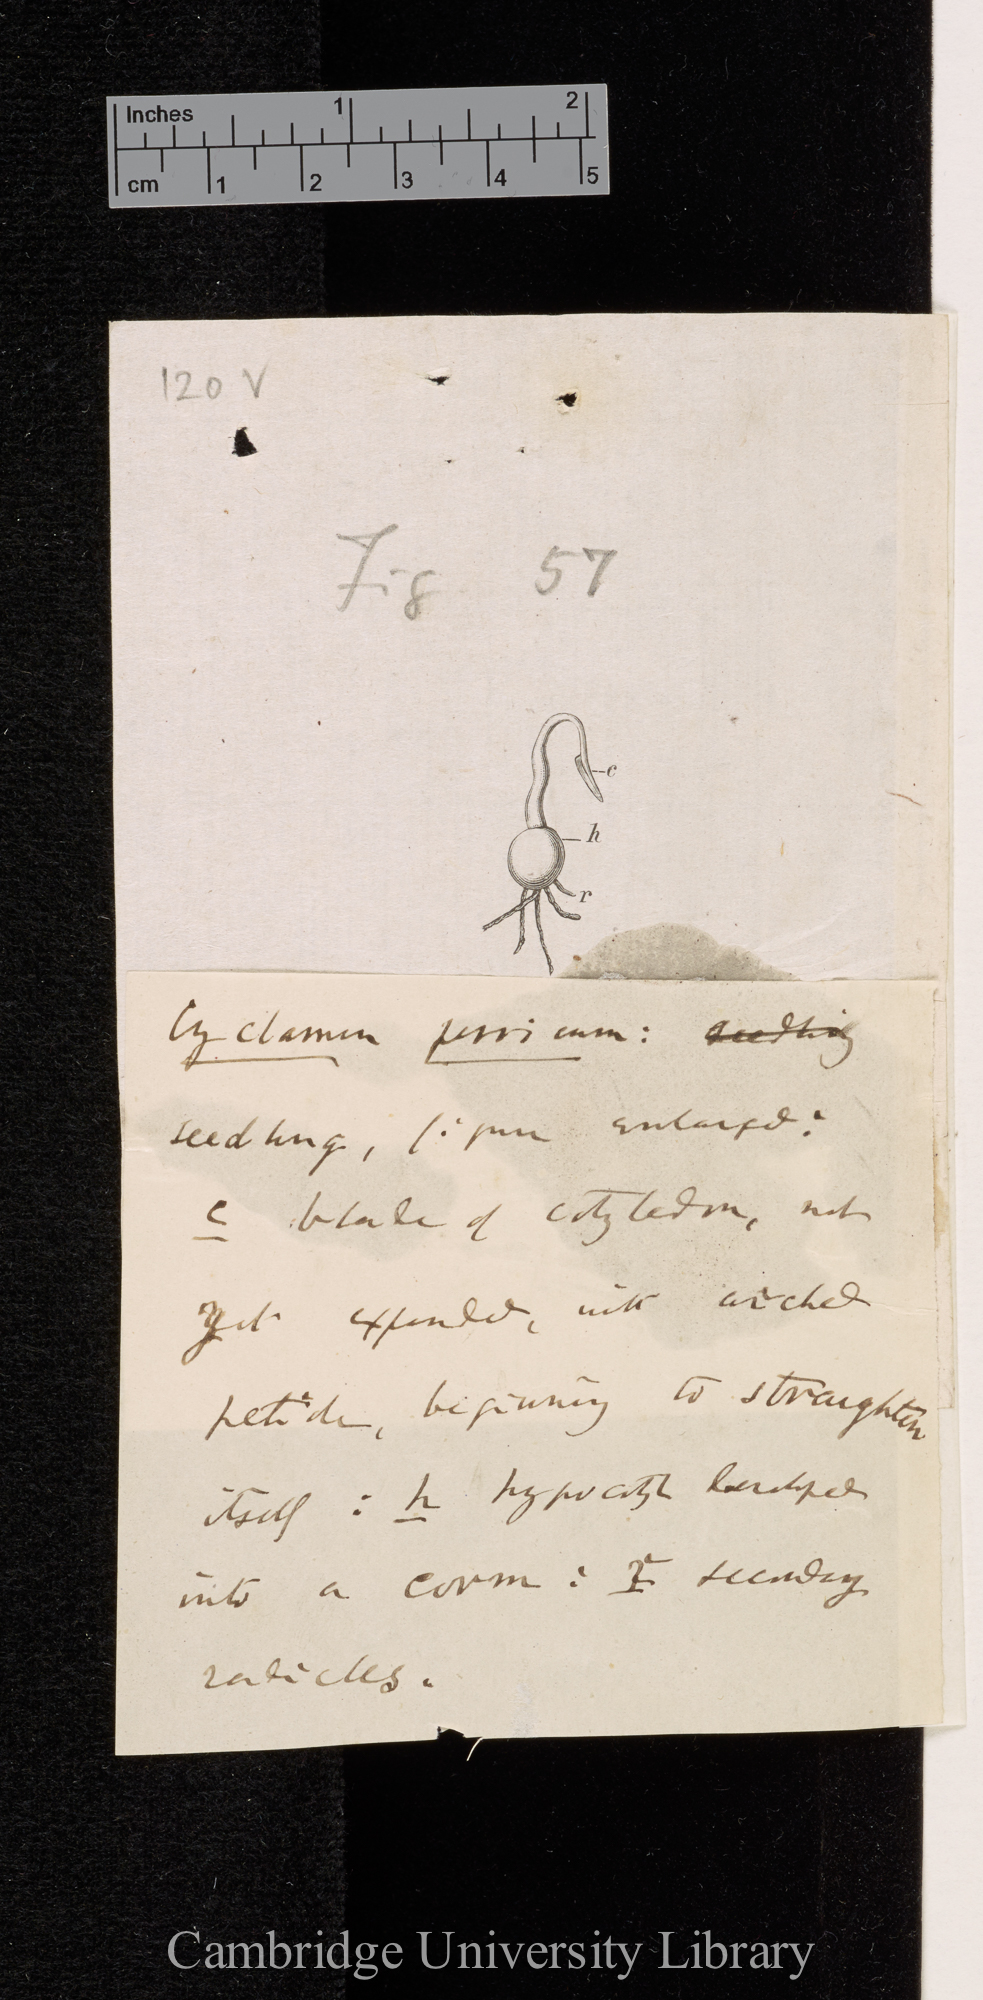 Inches 1 2
cm 1 2 3 4 5
120 V
Fig 57
c
h
r
Cyclamen persicum: seedling
seedling, figure enlarged:
c blade of cotyledon, not
yet expanded, with arched
petiole, beginning to straighten
itself : h hypocotyl developed
into a corm : r secondary
radicles.
Cambridge University Library